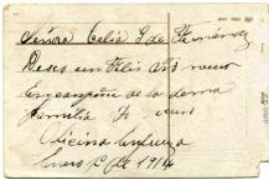 Señora Celia G de Fernández
Deseo un Felis año nuevo
En compañia de la dema
familia
Oficina
Enero 2 de 1914